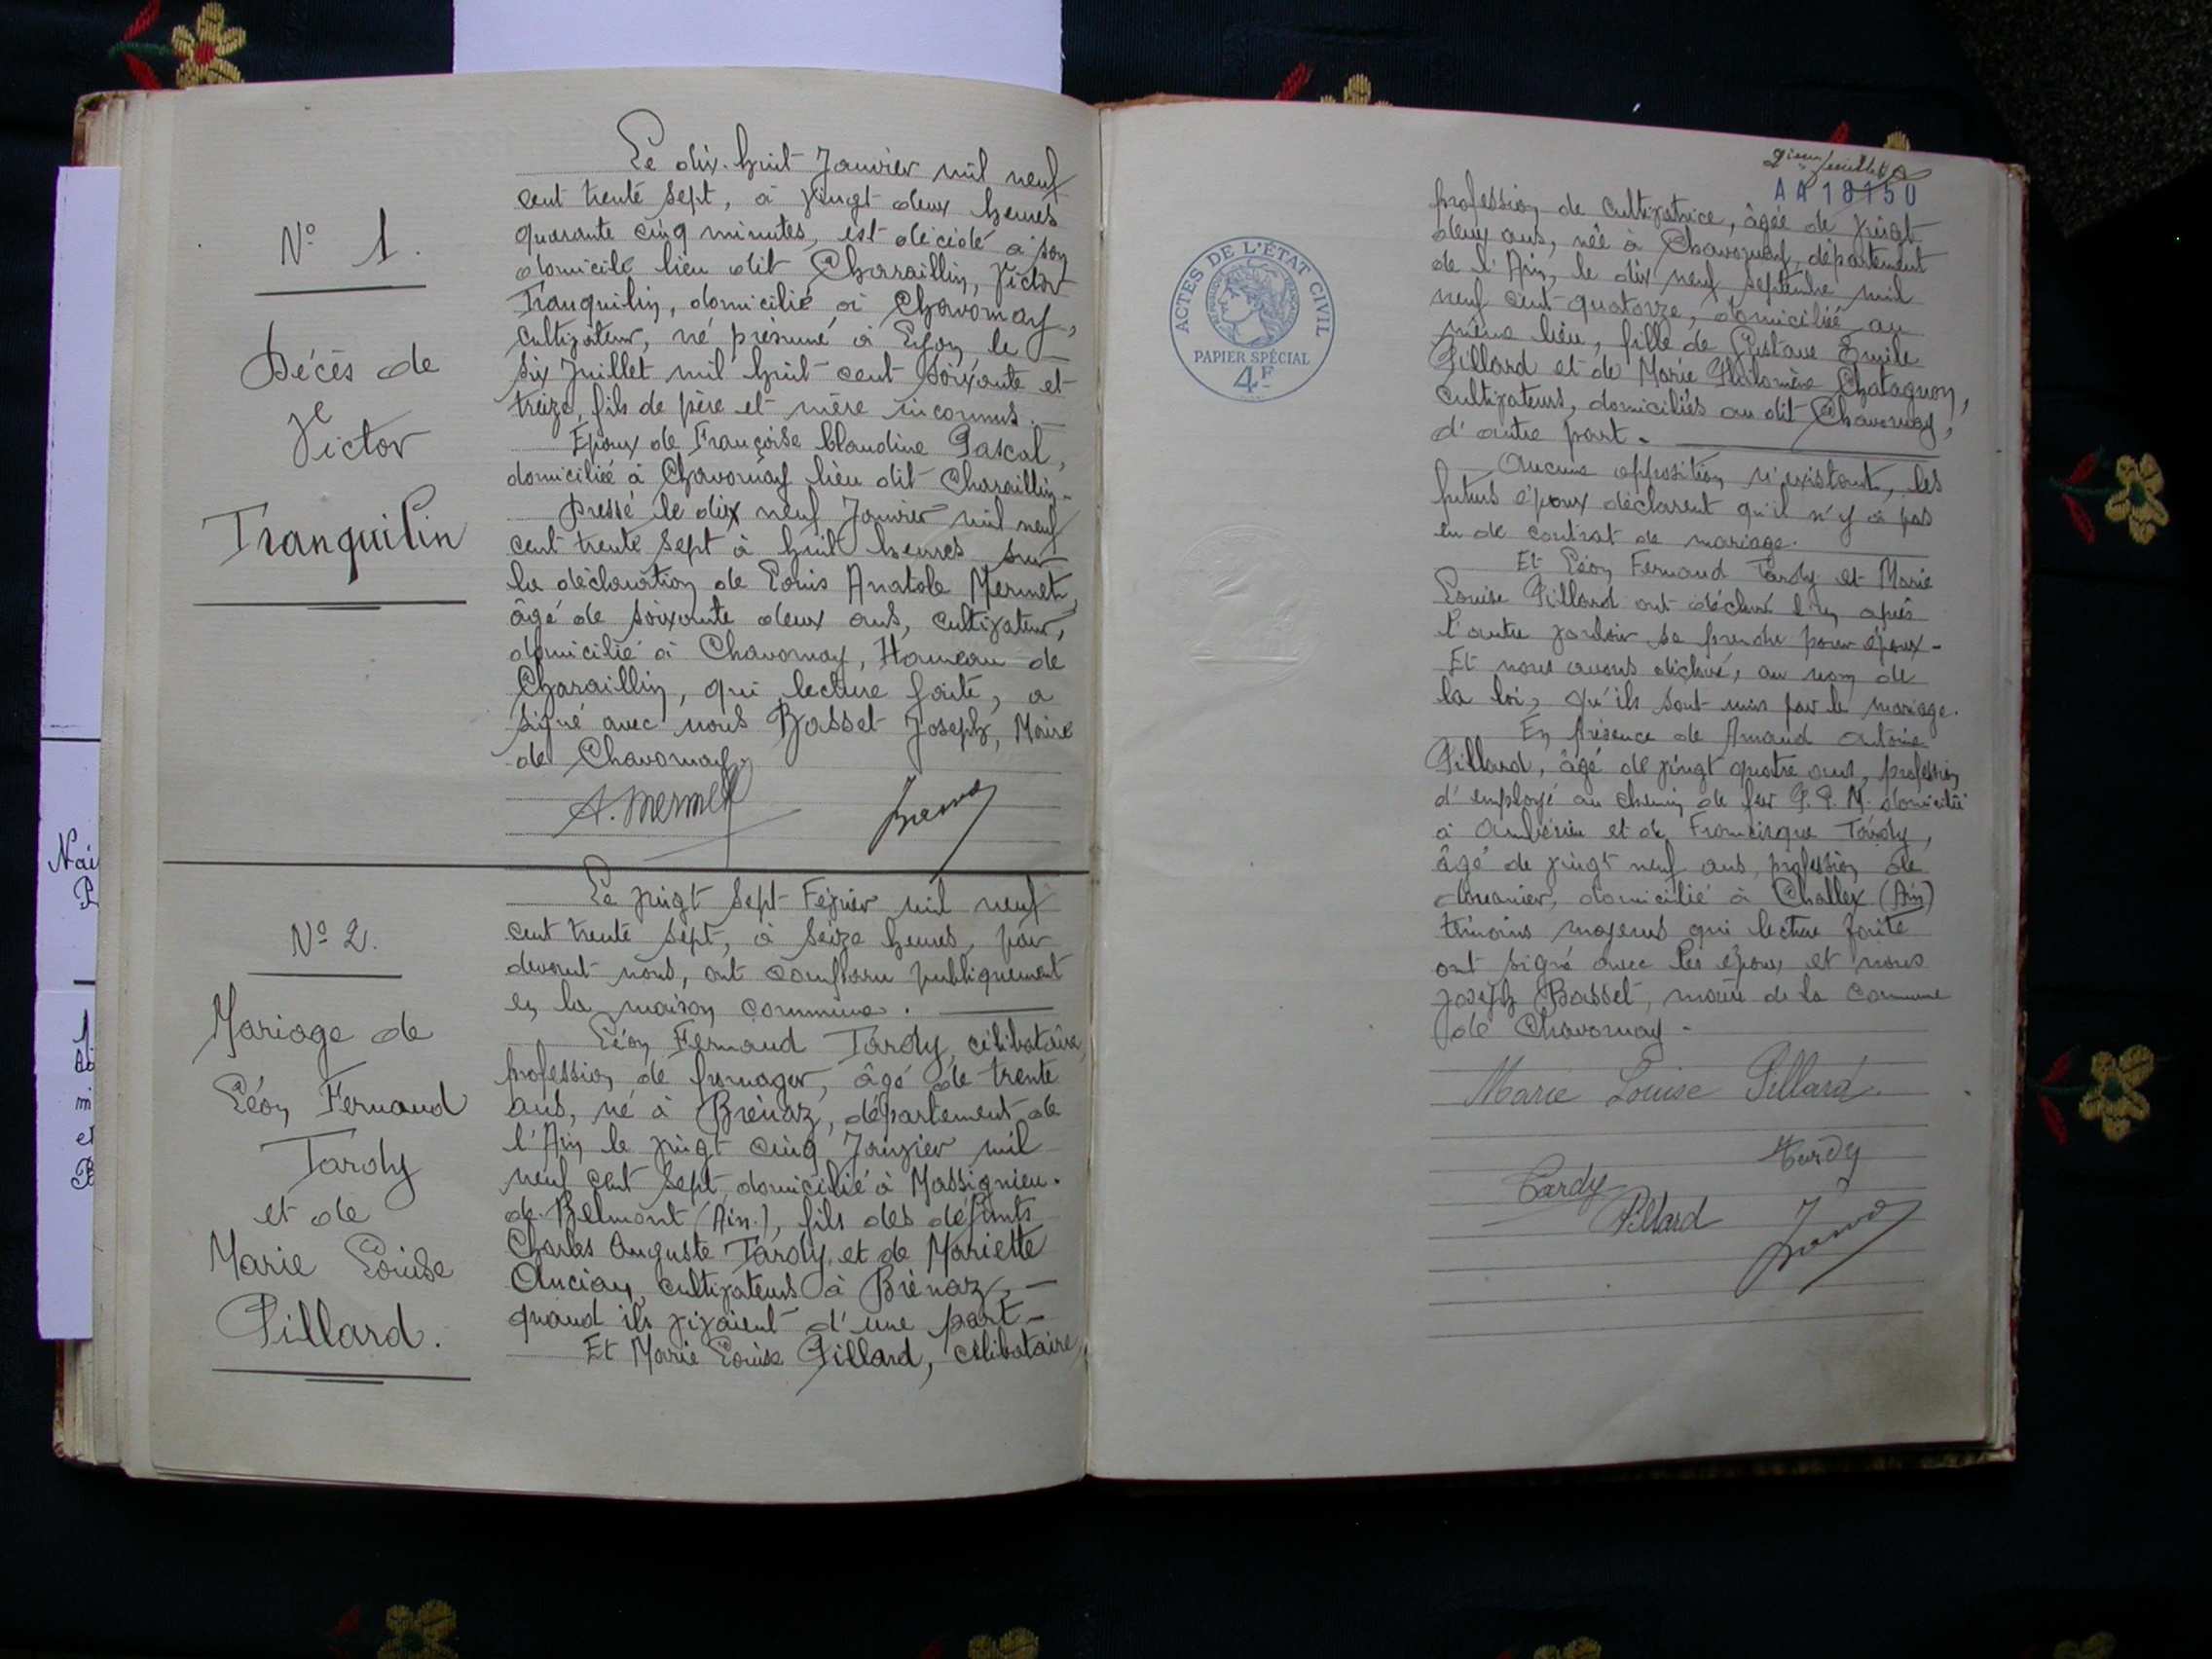 N° 1.
Décès de
Victor
Tranquilin
Le dix-huit Janvier mil neuf
cent trente sept, à vingt deux heures
quarante cinq minutes, est décédé à son
domicile lieu dit Charaillin, Victor
Tranquilin, domicilié à Chavornay,
cultivateur, né présumé à Lyon le
six Juillet mil huit cent soixante et
treize, fils de père et mère inconnus.
Epoux de Françoise Claudine Pascal,
domiciliée à Chavornay lieu dit Charaillin.
Dressé le dix neuf Janvier mil neuf
cent trente sept à huit heures sur
la déclaration de Louis Anatole Mermet,
âgé de soixante deux ans, cultivateur,
domicilié à Chavornay, Hameau de
Charaillin, qui lecture faite, a
signé avec nous Basset Joseph, Maire
de Chavornay.
A. Mermet
N° 2.
Mariage de
Léon Fernand
Tardy
et de
Marie Louise
Pillard.
Le vingt sept Février mil neuf
cent trente sept, à seize heures, par
devant nous, ont comparu publiquement
en la maison commune.
Léon Fernand Tardy, célibataire,
profession de fromager, âgé de trente
ans, né à Brénaz, département de
l'Ain le vingt cinq Janvier mil
neuf cent sept, domicilié à Massignieu-
de-Belmont (Ain.), fils des défunts
Charles Auguste Tardy, et de Mariette
Ancian, cultivateurs à Brénaz, -
quand ils vivaient d'une part -
Et Marie Louise Pillard, célibataire,
2ième feuillet
AA 18150
profession de cultivatrice, âgée de vingt
deux ans, née à Chavornay, département
de l'Ain, le dix neuf Septembre mil
neuf cent quatorze, domiciliée au
même lieu, fille de Gustave Emile
Pillard et de Marie Philomène Chatagnon,
cultivateurs, domiciliés au dit Chavornay,
d'autre part.
Aucune opposition n'existant, les
futurs époux déclarent qu'il n'y a pas
eu de contrat de mariage.
Et Léon Fernand Tardy et Marie
Louise Pillard ont déclaré l'un après
l'autre vouloir se prendre pour époux -
Et nous avons déclaré, au nom de
la loi, qu'ils sont unis par le mariage.
En présence de Amand Antoine
Pillard, âgé de vingt quatre ans, profession
d'employé au chemin de fer P. L. M. domicilié
à Ambérieu et de Francisque Tardy,
âgé de vingt neuf ans, profession de
douanier, domicilié à Challex (Ain)
témoins majeurs qui lecture faite
ont signé avec les époux et nous
Joseph Basset, maire de la Commune
de Chavornay -
Marie Louise Pillard.
Tardy
Tardy
Pillard
ACTES DE L'ÉTAT CIVIL
RÉPUBLIQUE FRANÇAISE
PAPIER SPÉCIAL
4F
Nai
P
1
m
et
B